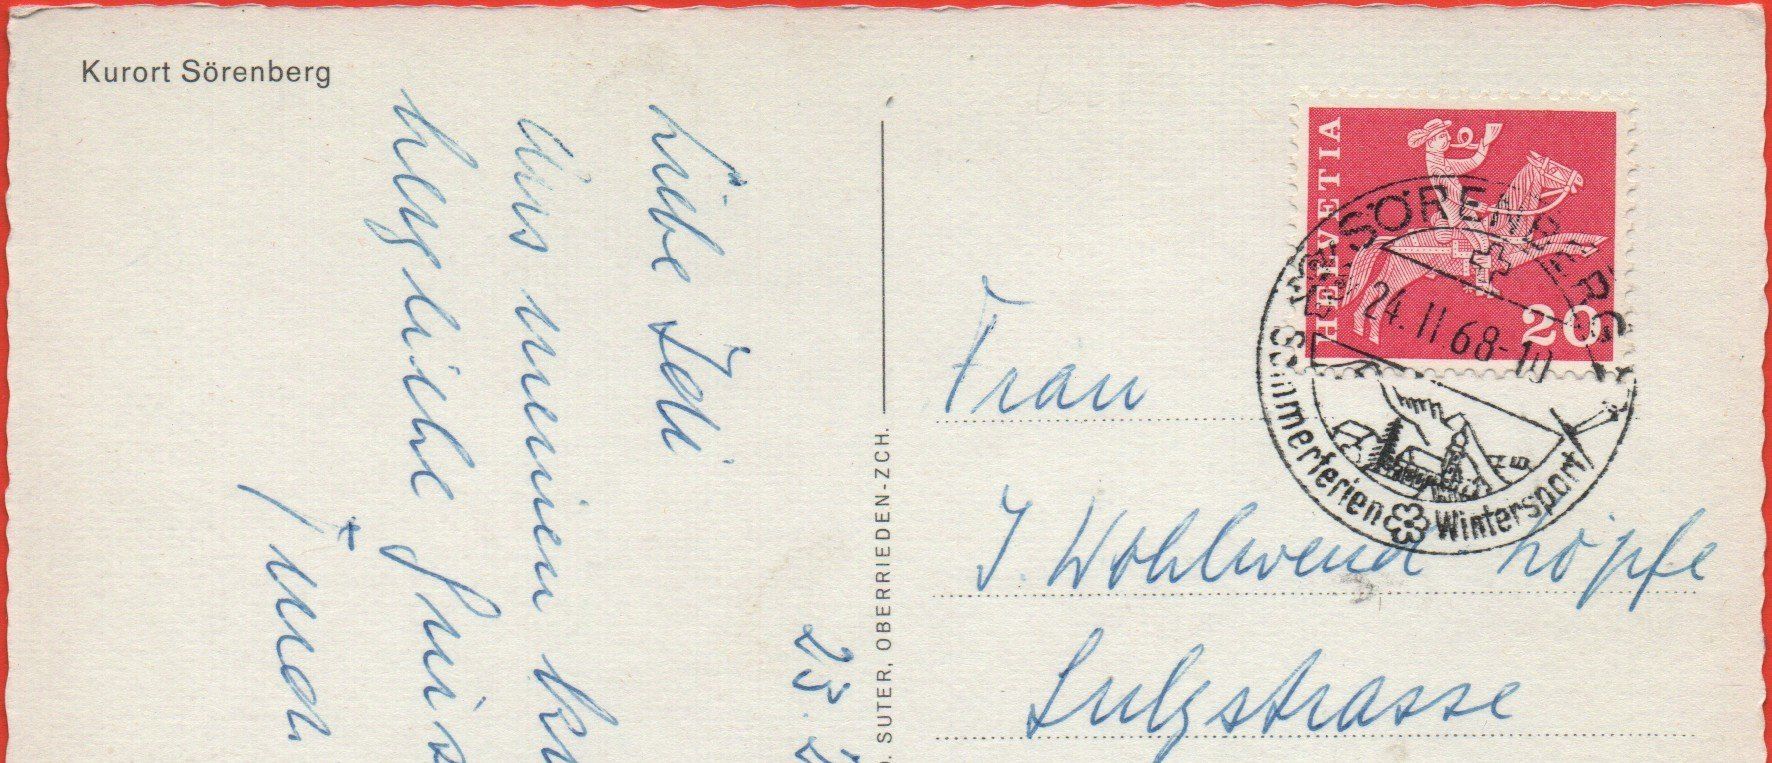 Kurort Sörenberg
Liebe Idi
Aus meinen
herzliche
und
23.
SUTER, OBERRIEDEN-ZCH.
HELVETIA
20
SÖRENBERG
24.II.68-10
Sommerferien Wintersport
Frau
J. Wohlwend Löpfe
Sulzstrasse